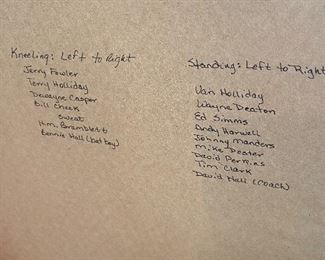 Kneeling: Left to Right
Jerry Fowler
Terry Holliday
Dewayne Casper
Bill Cheek
Sweat
H.M. Bramblett
Bennie Hall (bat boy)
Standing: Left to Right
Van Holliday
Wayne Deaton
Ed Simms
Andy Harwell
Johnny Manders
Mike Deater
David Perkins
Tim Clark
David Hall (Coach)